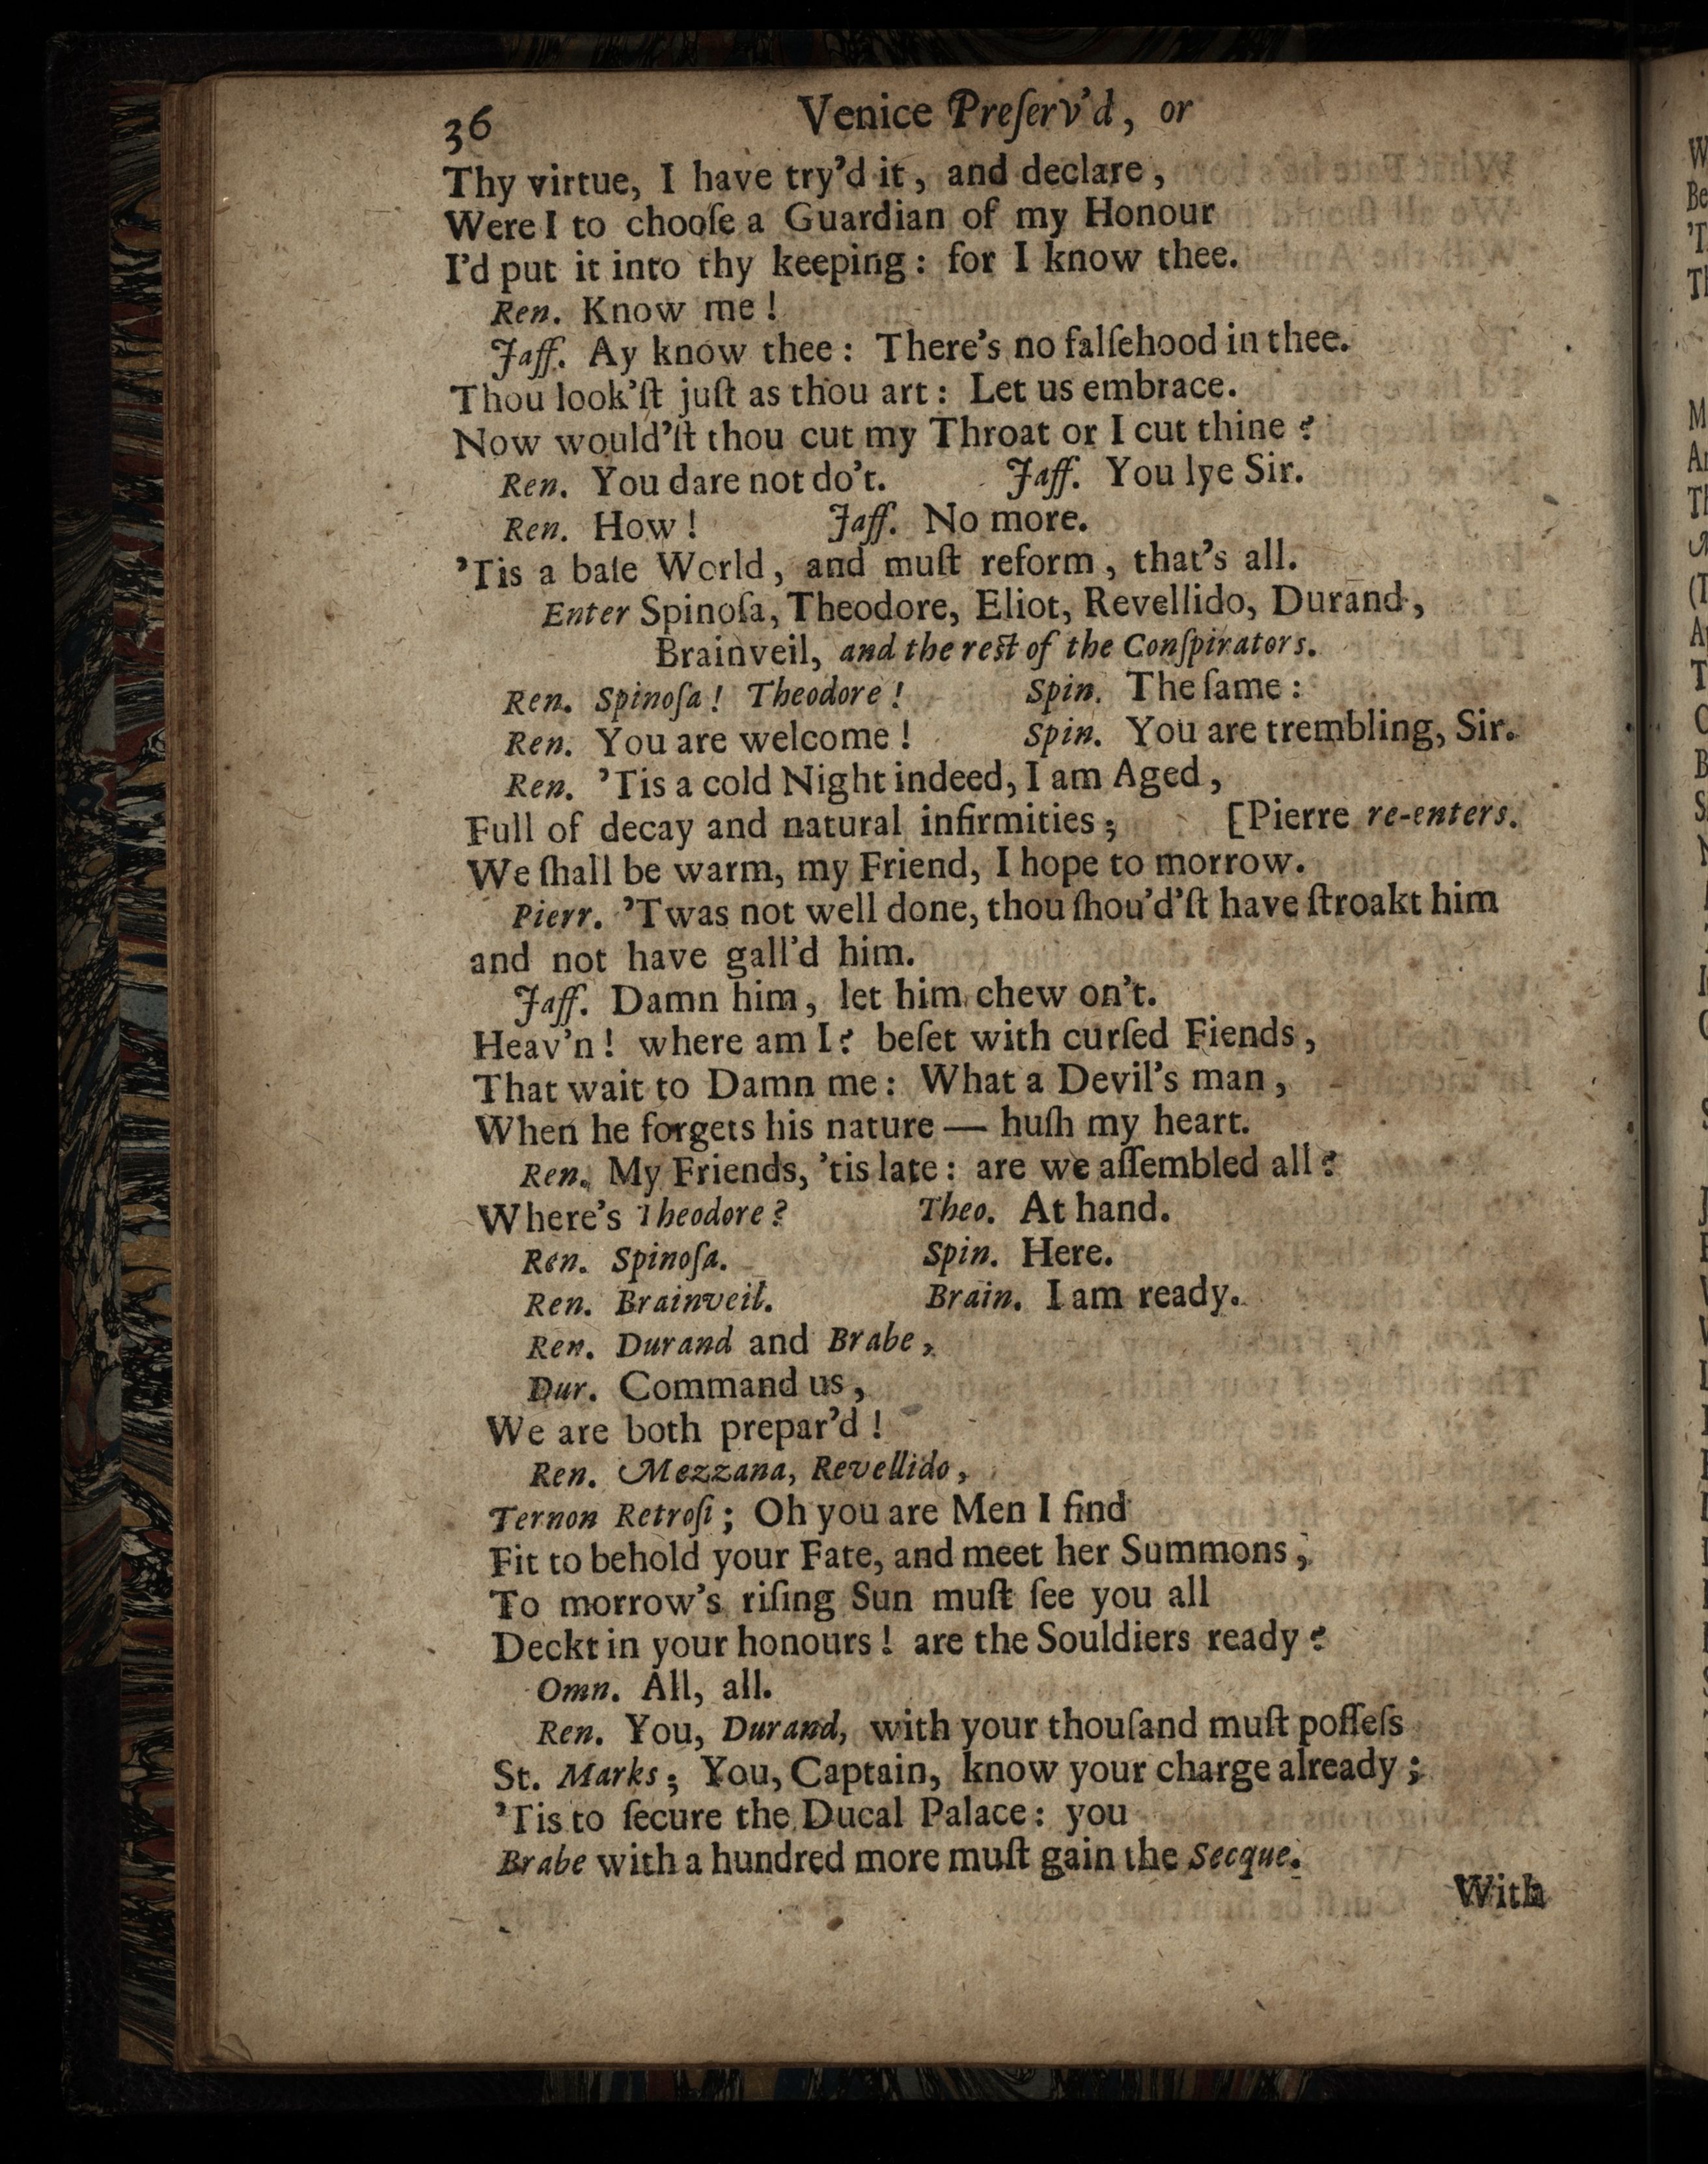 36 Venice Preſerv'd, or
Thy virtue, I have try'd it, and declare,
Were I to chooſe a Guardian of my Honour
I'd put it into thy keeping: for I know thee.
Ren. Know me!
Jaff. Ay know thee: There's no falſehood in thee.
Thou look'ſt juſt as thou art: Let us embrace.
Now would'ſt thou cut my Throat or I cut thine?
Ren. You dare not do't. Jaff. You lye Sir.
Ren. How! Jaff. No more.
'Tis a baſe World, and muſt reform, that's all.
Enter Spinoſa, Theodore, Eliot, Revellido, Durand,
Brainveil, and the reſt of the Conſpirators.
Ren. Spinoſa! Theodore! Spin. The ſame:
Ren. You are welcome! Spin. You are trembling, Sir.
Ren. 'Tis a cold Night indeed, I am Aged,
Full of decay and natural infirmities; [Pierre re-enters.
We ſhall be warm, my Friend, I hope to morrow.
Pierr. 'Twas not well done, thou ſhou'd'ſt have ſtroakt him
and not have gall'd him.
Jaff. Damn him, let him chew on't.
Heav'n! where am I? beſet with curſed Fiends,
That wait to Damn me: What a Devil's man,
When he forgets his nature — huſh my heart.
Ren. My Friends, 'tis late: are we aſſembled all?
Where's Theodore? Theo. At hand.
Ren. Spinoſa. Spin. Here.
Ren. Brainveil. Brain. I am ready.
Ren. Durand and Brabe,
Dur. Command us,
We are both prepar'd!
Ren. Mezzana, Revellido,
Ternon Retroſi; Oh you are Men I find
Fit to behold your Fate, and meet her Summons,
To morrow's riſing Sun muſt ſee you all
Deckt in your honours! are the Souldiers ready?
Omn. All, all.
Ren. You, Durand, with your thouſand muſt poſſeſs
St. Marks; You, Captain, know your charge already;
'Tis to ſecure the Ducal Palace: you
Brabe with a hundred more muſt gain the Secque.
With